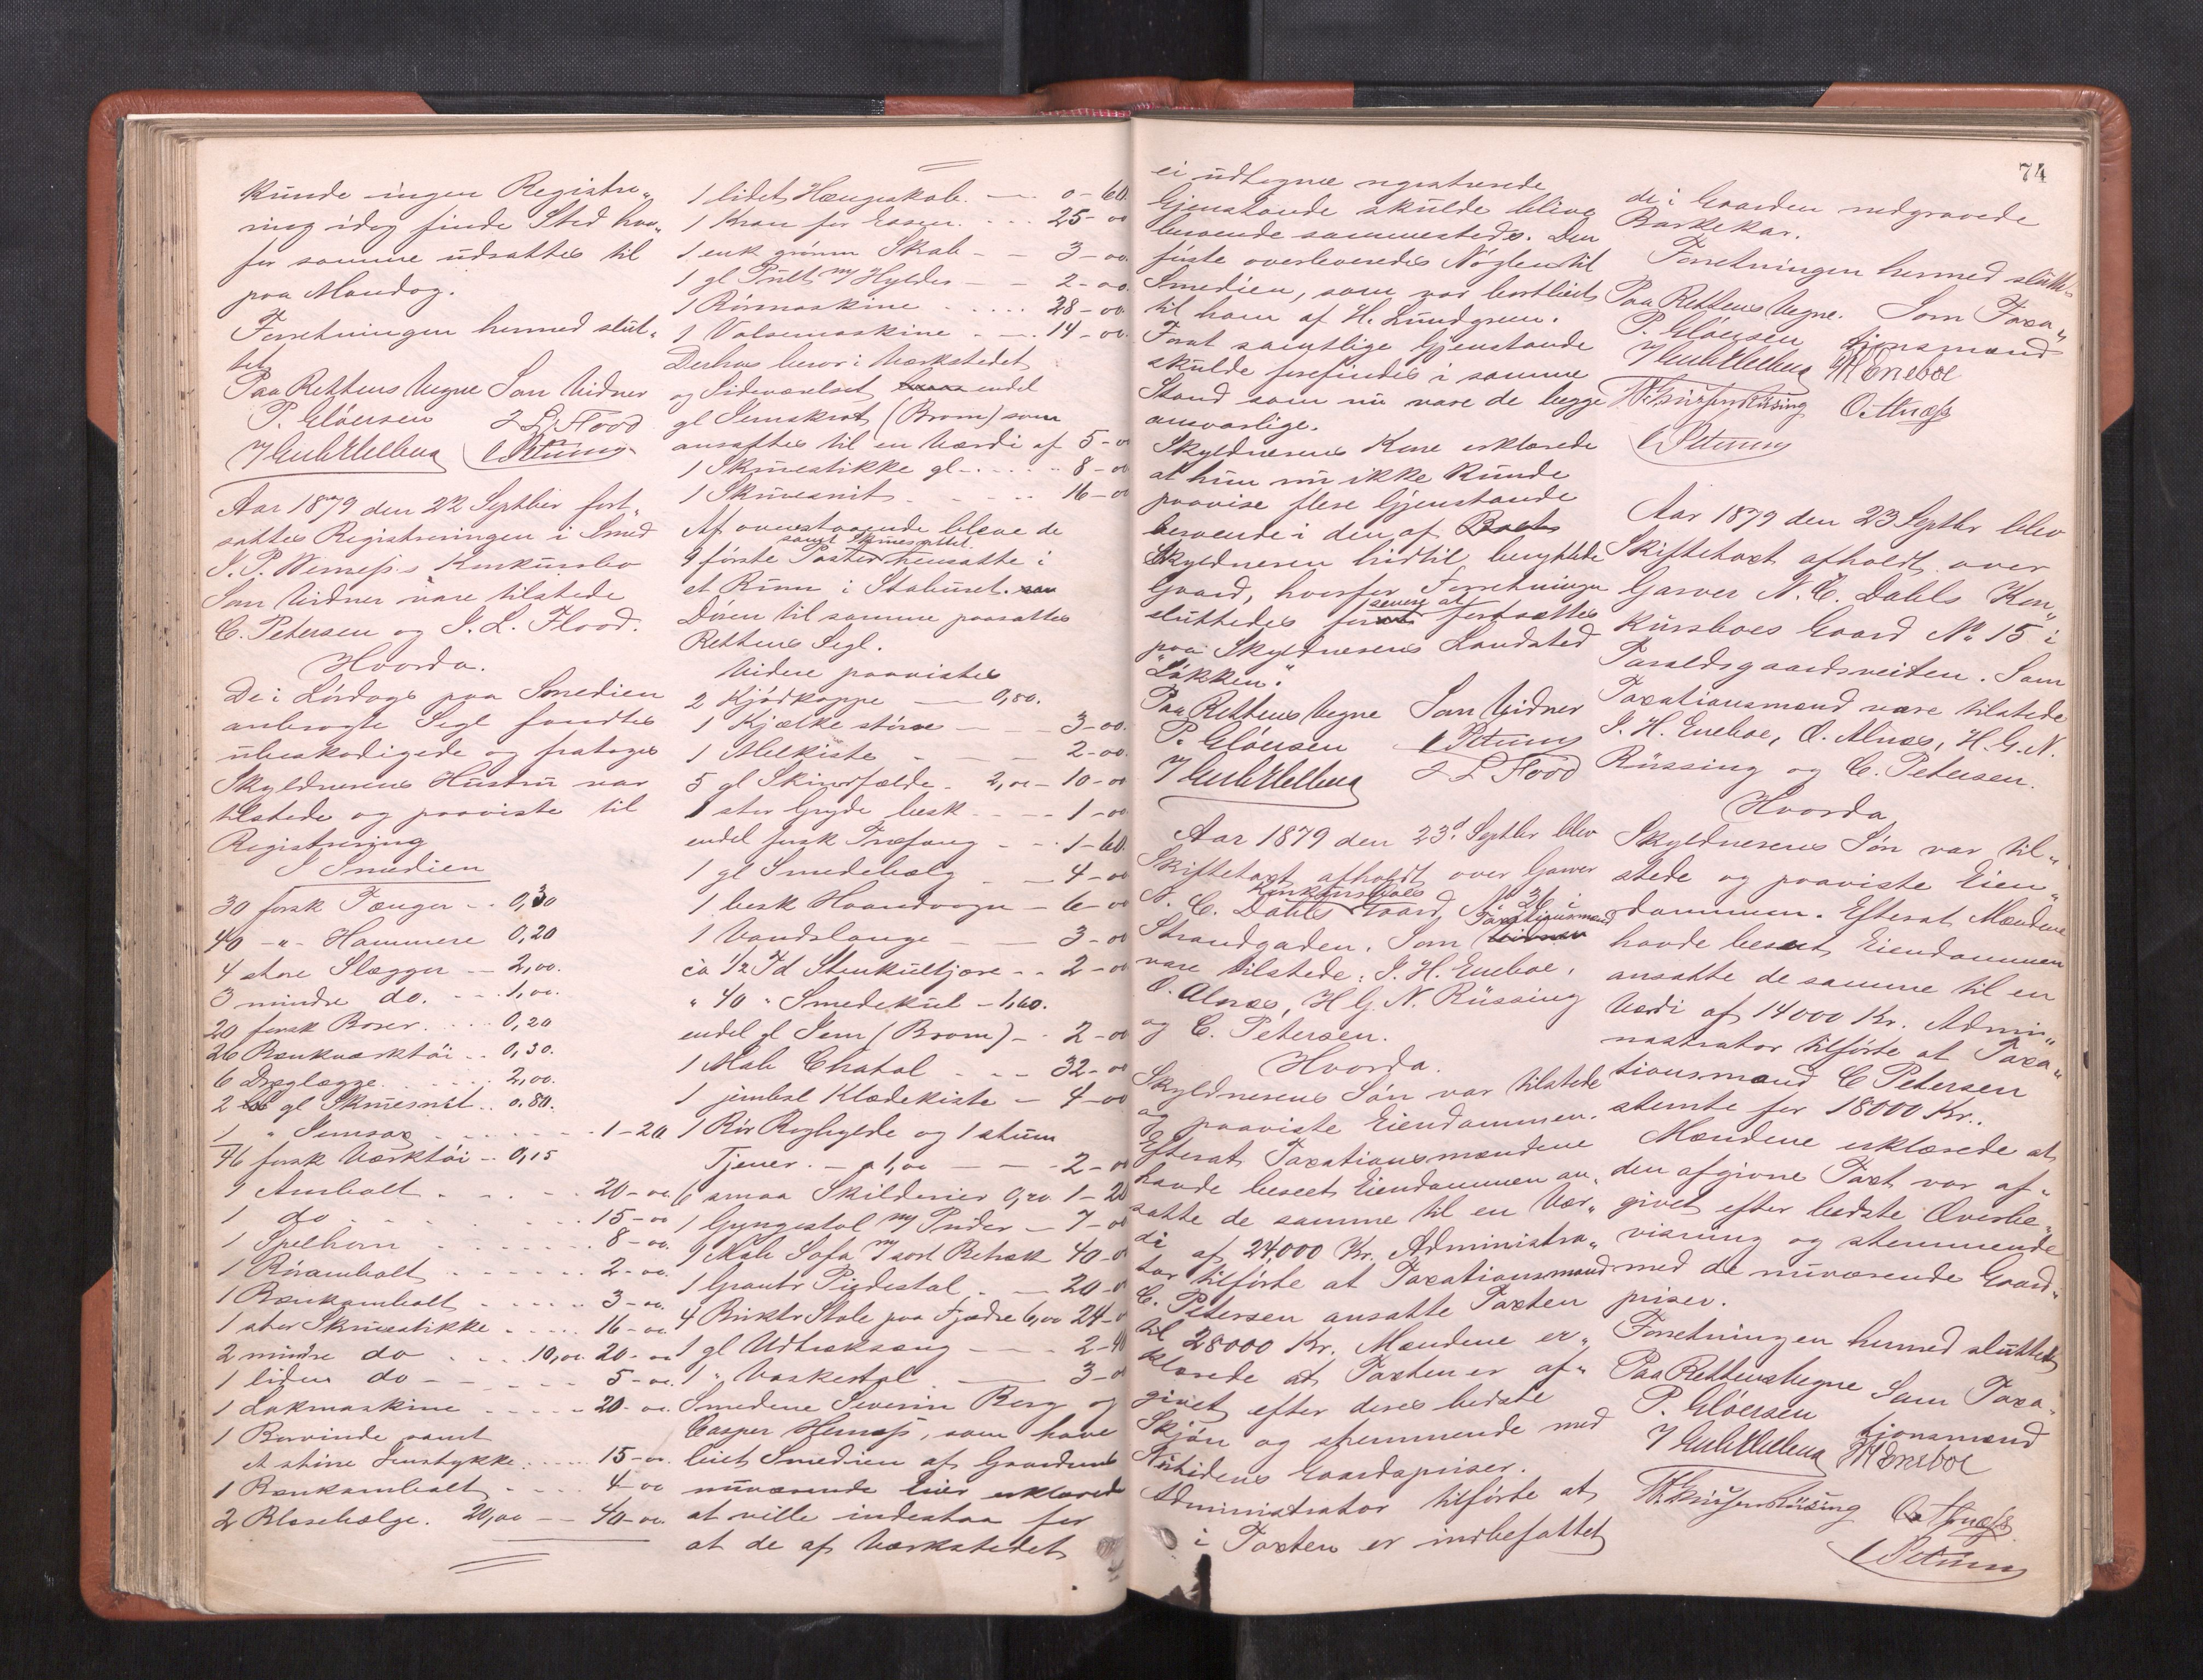 Kunde ingen Registre„
ring idag finde Sted hvor„
for samme udsattes til
paa Mandag.
Forretningen hermed slut„
tet
Paa Rettens Vegne Som Vidner
P. Gløersen J L Flood
C Petersen
Aar 1879 den 22 Septbr fort„
sattes Registreringen i Smed
J. P. Wernes's Konkursbo
Som Vidner vare tilstede
C. Petersen og J. L. Flood.
Hvorda.
De i Lørdags paa Smedien
anbragte Segl fandtes
ubeskadigede og fratoges
Skyldnerens Hustru var
tilstede og paaviste til
Registrering
I Smedien
30 forsk Tænger - - 0,30
40 -„- Hammere 0,20
4 store Slægger -- 2,00.
3 mindre do. - - - 1,00.
20 forsk Boser. . . . 0,20
26 Bænkværktøi . . 0,30.
6 Dræglægge . . . . . 2,00.
2 gl Skruesnit . . 0.80.
1 „ Jernsag . . . . . . 1-20
46 forsk Værktøi - - 0,15
1 Ambolt . . . . . 20-00
1 do . . . . . . . 15-00
1 Spelhorn . . . . . . 8-00.
1 Rørambolt . . . . . . 2-00.
1 Bænkambolt . . . . . . 3-00.
1 stor Skruestikke . . . . . 16-00
2 mindre do . . . 10,00. 20-00
1 liden do - - - - - 5-00.
1 Lokmaskine . . . . - 20-00
1 Borvinde samt
et större Jernstykke. . . . . 15-00.
1 Bænkambolt . . . . 4-00
2 Blæsebælge. 20,00 - - 40-00.
1 lidet Hængeskab. — 0-60.
1 Kran for Essen. . . . 25-00
1 enk grönm Skab - - 3-00.
1 gl Pult m/ Hylder - - 2-00.
1 Rörmaskine . . . . . 28-00.
1 Valsemaskine . — . 14-00.
Derhos beror i Værkstedet
og Sideværelset endel
gl Jernskrot (Brom) som
ansattes til en Værdi af 5-00
1 Skruestikke gl - . . . . 8-00
1 Skruesnit . . . . . 16-00
Af ovenstaaende bleve de
samt Skruesnittet
9 første Poster hensatte i
et Rum i Staburet.
Dören til samme paasattes
Rettens Segl.
Videre paavistes
2 Kjødkoppe — 0,50.
1 Kjælke större — — 3-00.
1 Melkiste — — — 2-00.
5 gl Skindfælde - 2,00 - 10-00
1 stor Gryde besk - - - - 1-00
endel forsk Træfang - - - 1-60.
1 gl Smedebælg - - 4-00
1 besk Haandvogn - 6-00
1 Vandslange — — 3-00
ca 1/2 Td Stenkultjære - - 2-00
„ 40 „ Smedekul - 1,60.
endel gl Jern (Brom) - . 2-00
1 Mah Chatol - - - 32-00
1 jernbesl Klædekiste - 4-00
1 Rör Roghylde og 1 stum
Tjener. - a 1,00 — — 2-00
6 smaa Skilderier 0,20 1-20
1 Gyngestol m/ Puder - 7-00
1 Mah Sofa m/ sort Betræk 40-00
1 Grantr Piedestal . — 20-00
4 Birktr Stole paa Fjædre 6,00 24-00
1 gl Udtræksseng — — 2-40
1 „ Vaskestol — — 3-00
Smedene Severin Berg og
Casper Hernæss, som have
leiet Smedien af Gaardens
nuværende Eier erklærede
at ville indestaa for
at de af Værkstedet
74
ei udtagne registrerede
Gjenstande skulde blive
beroende sammesteds. Den
første overleveredes Nøglen til
Smedien, som var bortleiet
til ham af H. Lundgreen.
Forat samtlige Gjenstande
skulde forefindes i samme
Stand som nu vare de begge
ansvarlige.
Skyldnerens Kone erklærede
at hun nu ikke kunde
paavise flere Gjenstande
beroende i den af Boets
Skyldneren hidtil benyttede
Gaard, hvorfor Forretningen
senere at
sluttedes for fortsættes
paa Skyldnerens Landsted
"Løkken".
Paa Rettens Vegne Som Vidner
P. Gløersen C Petersen
J L Flood
Aar 1879 den 23d Septbr blev
Skiftetaxt afholdt over Garver
Konkursboes
N. C. Dahls Gaard, No 26 i
Taxationsmænd
Strandgaden. Som Vidner
vare tilstede: J. H. Eneboe,
O. Alnæs, H. G. N. Rüssing
og C. Petersen.
Hvorda.
Skyldnerens Søn var tilstede
og paaviste Eiendommen.
Efterat Taxationsmændene
havde beseet Eiendommen an„
satte de samme til en Vær„
di af 24,000 Kr. Administra„
tor tilførte at Taxationsmand
C. Petersen ansatte Taxten
til 28000 Kr. Mændene er„
klærede at Taxten er af„
givet efter deres bedste
Skjøn og stemmende med
Nutidens Gaardspriser.
Administrator tilførte at
i Taxten er indbefattet
de i Gaarden nedgravede
Barkekar.
Forretningen hermed sluttet
Paa Rettens Vegne. Som Taxa„
P. Gløersen tionsmænd
JH Eneboe
O. Alnæss
C Petersen
Aar 1879 den 23 Septbr blev
Skiftetaxt afholdt over
Garver N. C. Dahls Kon„
kursboes Gaard No 15 i
Taraldsgaardsveiten. Som
Taxationsmænd vare tilstede
J. H. Eneboe, O. Alnæs, H. G. N.
Rüssing og C. Petersen.
Hvorda
Skyldnerens Søn var til„
stede og paaviste Eien„
dommen. Efterat Mændene
havde beseet Eiendommen
ansatte de samme til en
Værdi af 14000 Kr. Admi„
nistrator tilførte at Taxa„
tionsmand C Petersen
stemte for 18000 Kr..
Mændene erklærede at
den afgivne Taxt var af„
givet efter bedste Overbe„
visning og stemmende
med de nuværende Gaard„
priser.
Forretningen hermed sluttet
Paa Rettens Vegne Som Taxa„
P. Gløersen tionsmænd
JH Eneboe
O. Alnæss
C Petersen